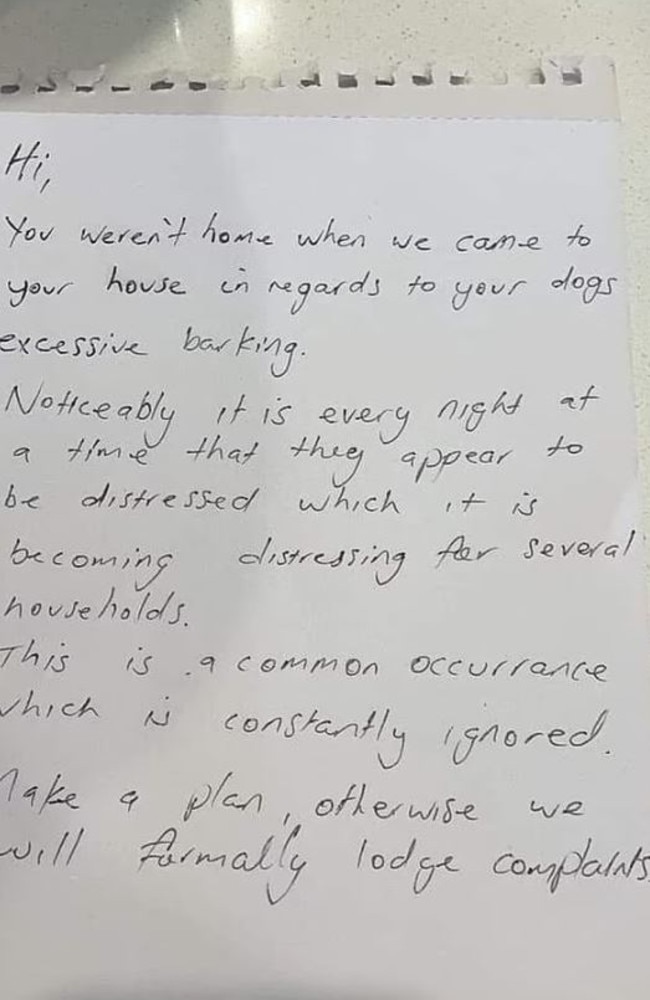 Hi,
You weren't home when we came to
your house in regards to your dogs
excessive barking.
Noticeably it is every night at
a time that they appear to
be distressed which it is
becoming distressing for several
households.
This is a common occurrance
which is constantly ignored.
Make a plan, otherwise we
will formally lodge complaints